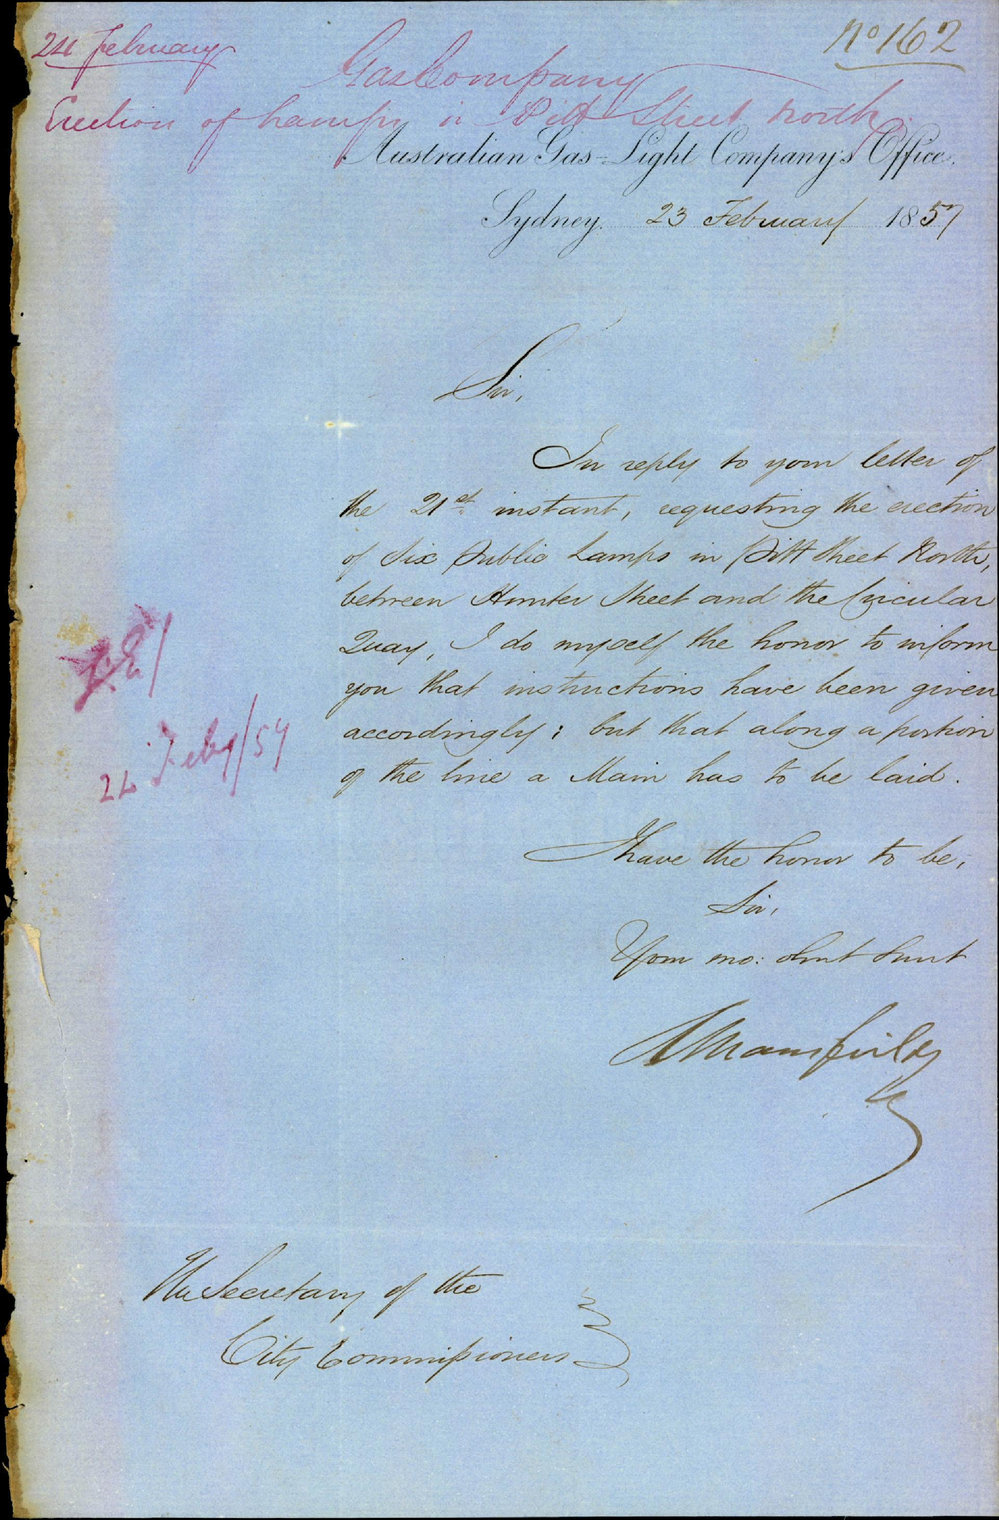 24 February
No 162
Gas Company
Erection of Lamps in Pitt Street North
Australian Gas-Light Company's Office.
Sydney. 23 February 1857
Sir,
In reply to your letter of
the 21st instant, requesting the erection
of Six Public Lamps in Pitt Street North,
between Hunter Street and the Circular
Quay, I do myself the honor to inform
you that instructions have been given
accordingly; but that along a portion
of the line a Main has to be laid.
24 Feby/57
I have the honor to be,
Sir,
Your mo: obnt Servt
RMansfield
The Secretary of the
City Commissioners